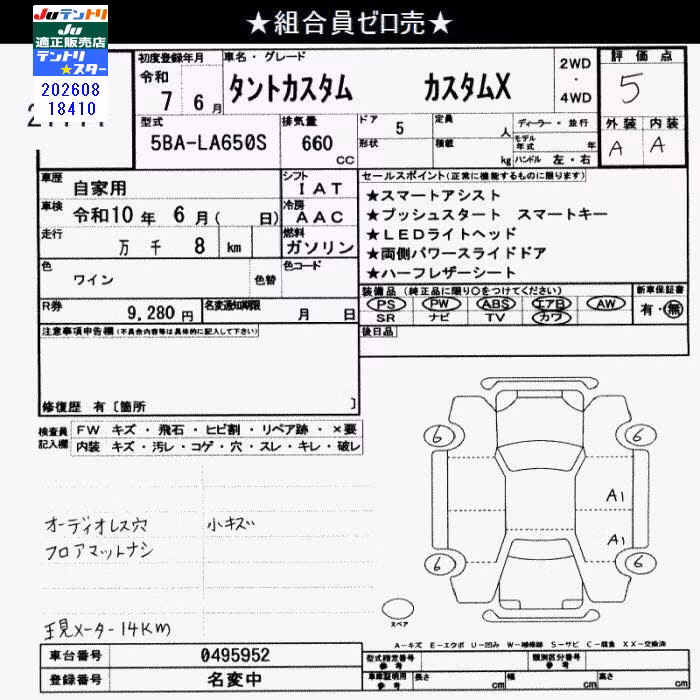 ★組合員ゼロ売★
Juテントリ
Ju
適正販売店
テントリ
★スター
202608
18410
初度登録年月
令和
7 6月
車名・グレード
タントカスタム カスタムX
2WD
・
4WD
評価点
5
外装 内装
A A
型式
5BA-LA650S
排気量
660
CC
ドア 5
形状
定員 人
積載 kg
ディーラー・並行
モデル年式 年
ハンドル 左・右
車歴 自家用
シフト IAT
車検 令和10年 6月( 日)
冷房 AAC
走行 万 千 8 km
燃料 ガソリン
色 ワイン 色替
色コード
R券 9,280円
名変通知期限 月 日
セールスポイント(正常に機能するものに限ります)
★スマートアシスト
★プッシュスタート スマートキー
★LEDライトヘッド
★両側パワースライドドア
★ハーフレザーシート
装備品(純正品に限り○をつけてください)
PS PW ABS エアB AW
SR ナビ TV カワ
新車保証書
有・無
後日品
注意事項申告欄(不具合内容等は具体的に記入して下さい)
修復歴 有〔箇所 〕
検査員
記入欄
FW キズ・飛石・ヒビ割・リペア跡・×要
内装 キズ・汚レ・コゲ・穴・スレ・キレ・破レ
オーディオレス穴
フロアマットナシ
小キズ
現メーター14Km
6 6
A1
A1
6 6
スペア
A-キズ E-エクボ U-凹み W-補修跡 S-サビ C-腐食 XX-交換済
車台番号 0495952
登録番号 名変中
型式指定番号
参考
類別区分番号
参考
車庫証明用
参考
長さ cm
幅 cm
高さ cm